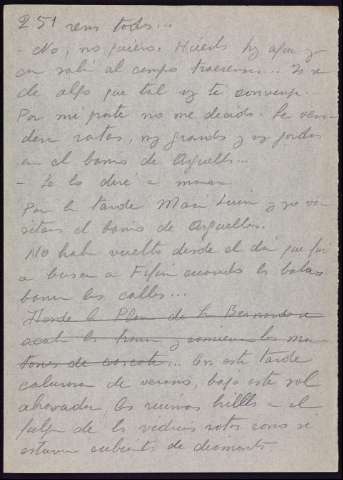 251 remos todos...
- No, no quiero. Huido hoy apenas
con salir al campo traeremos... Yo se
de algo que tal vez te convenza.
Por mi parte no me decido. Se ven
den ratas, muy grandes y muy gordas
en el barrio de Argüelles...
- Se lo diré a mamá
Por la tarde María Luisa y yo vi
sitamos el barrio de Argüelles.
No había vuelto desde el día que fui
a buscar a Fifín cuando las balas
barrían las calles...
Desde la Plaza de la
acaban los y comienzan los mon
tones de cascote... En esta tarde
calurosa de verano, bajo este sol
ahogador las ruinas brillan en el
de los vidrios rotos como si
estuvieran cubiertas de diamantes